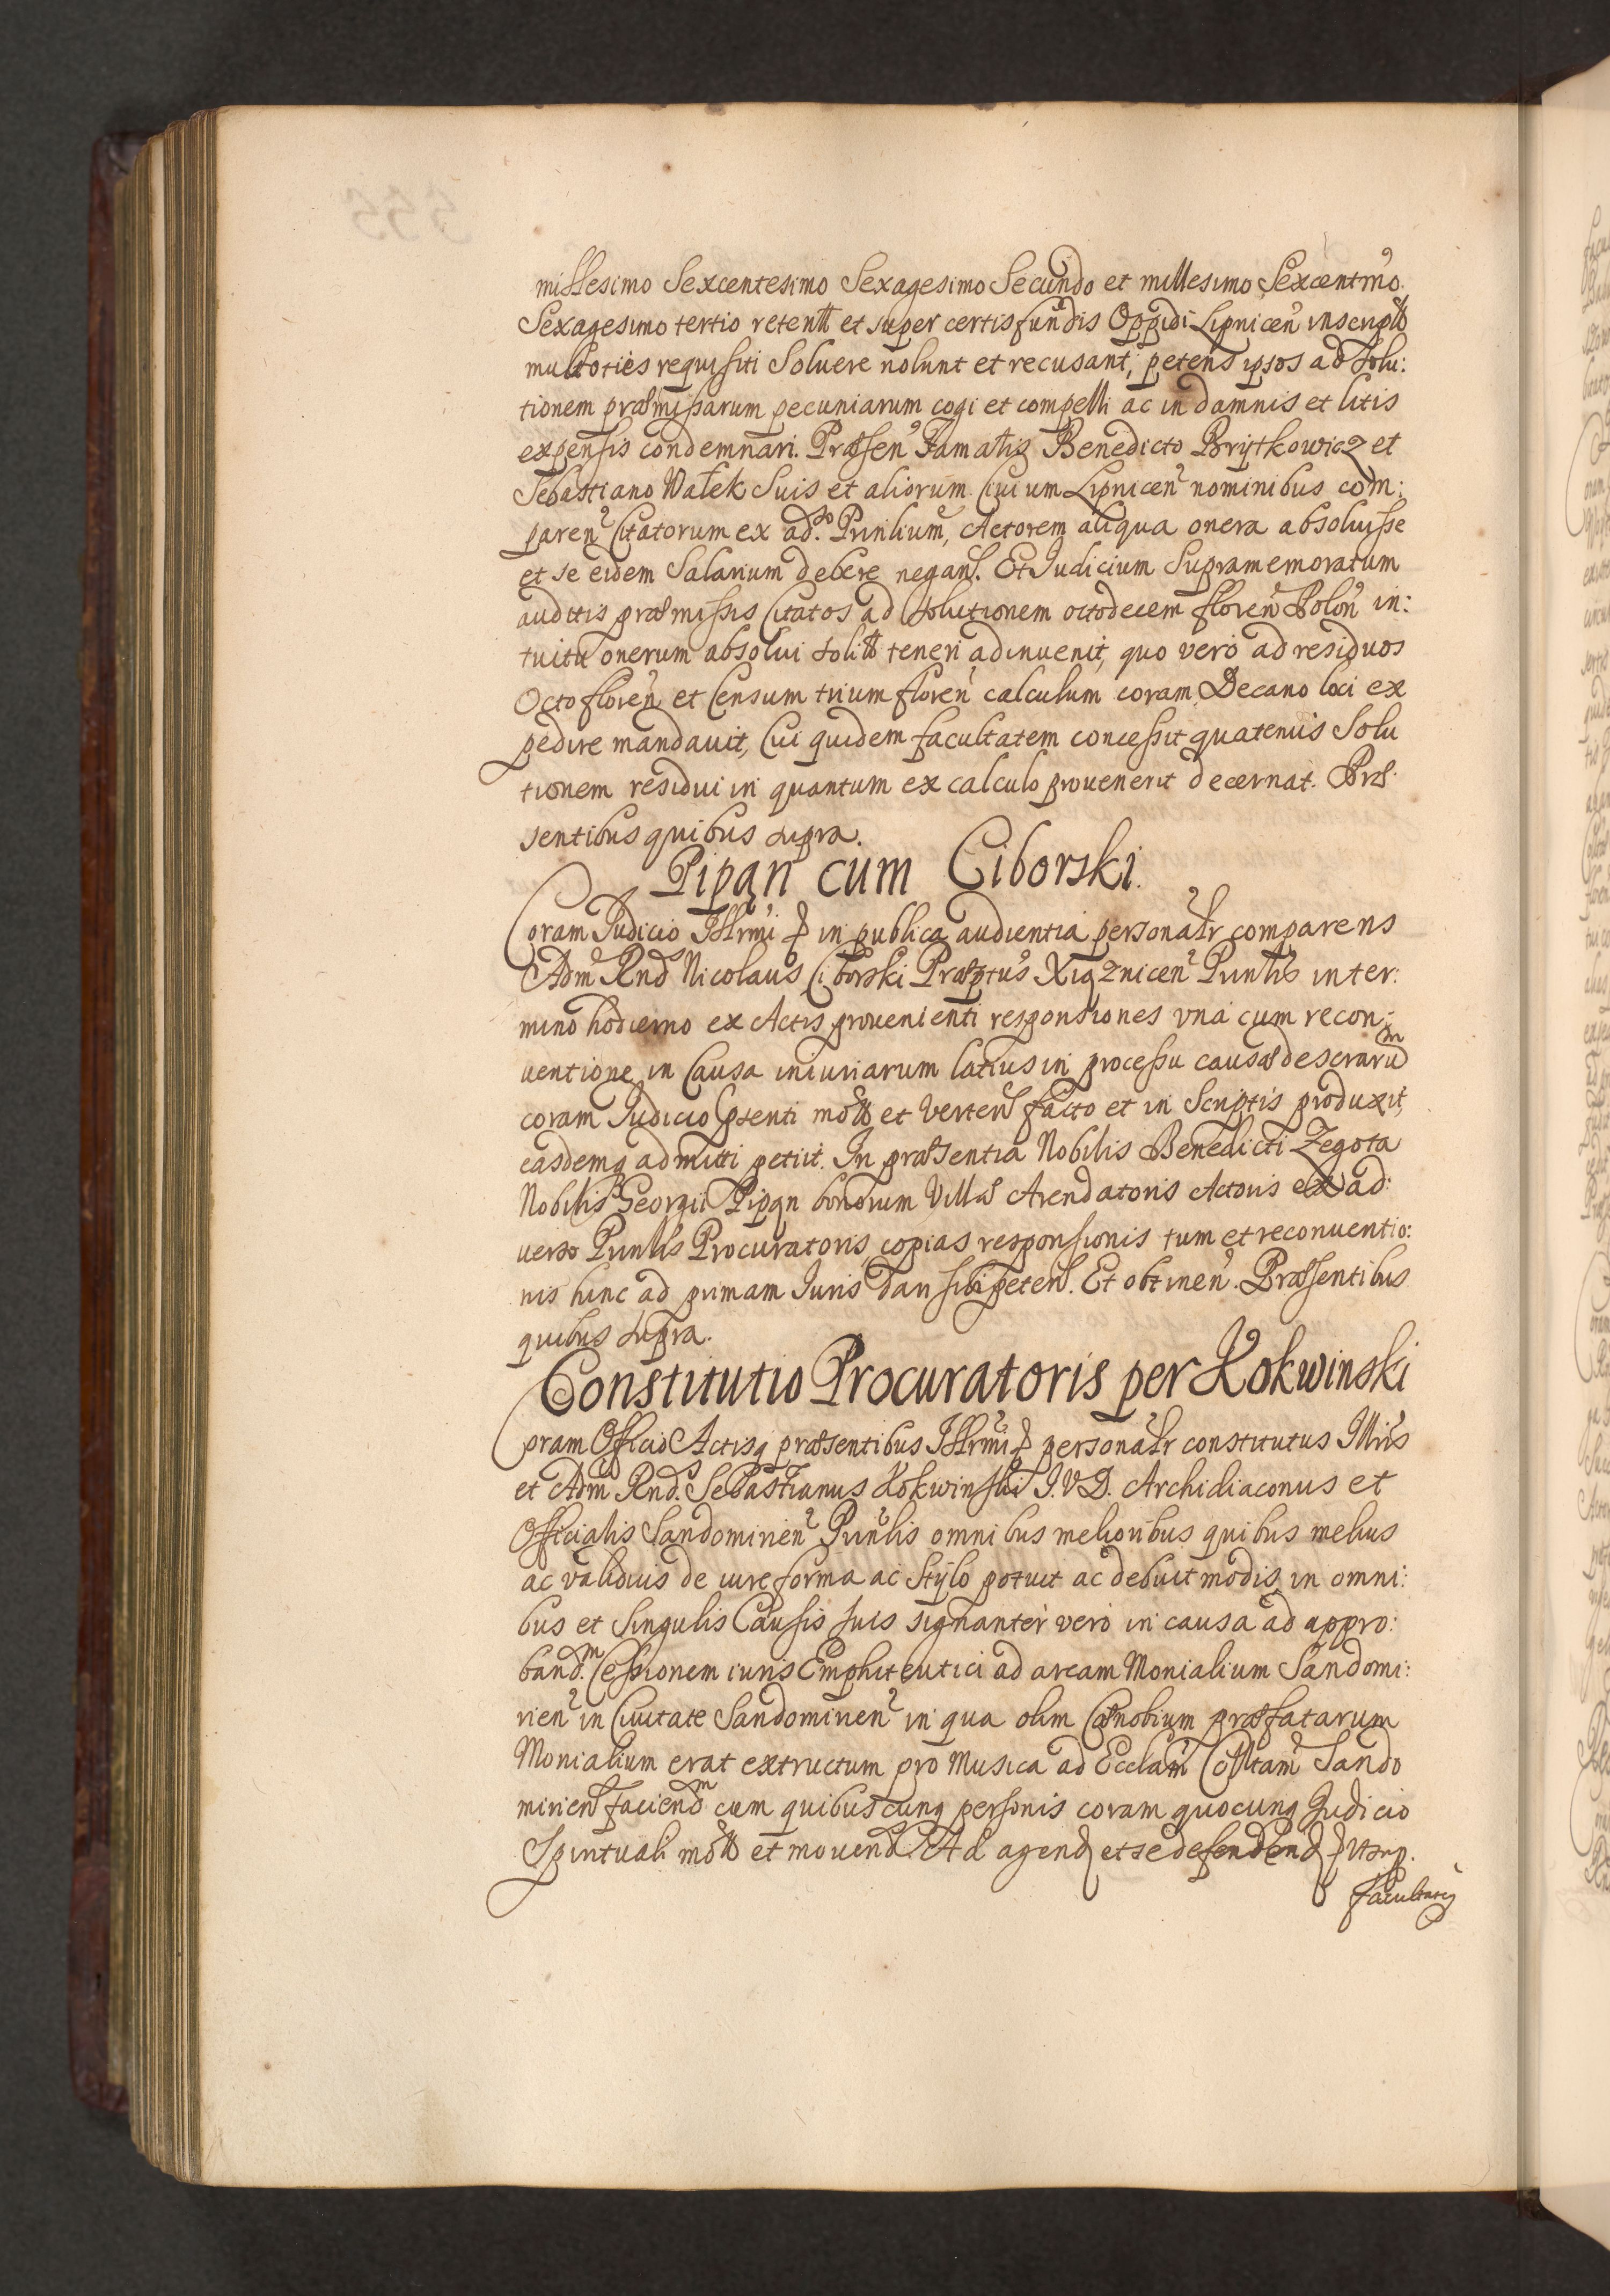 millesimo Sexcentesimo Sexagesimo Secundo et millesimo Sexcentmo
Sexagesimo tertio retent et super certis fundis Oppidi Lipnicen inscript
multoties requisiti Soluere nolunt et recusant, petens ipsos ad Solu:
tionem præmissarum pecuniarum cogi et compelli ac in damnis et litis
expensis condemnari. Præsen Famatis Benedicto Brytkowicz et
Sebastiano Wałek Suis et aliorum Ciuium Lipnicen nominibus com:
paren Citatorum ex ad.so Prinlium, Actorem aliqua onera absoluisse
et se eidem Salarium debere negans. Et Judicium Supramemoratum
auditis præmissis Citatos ad Solutionem octodecem floren Polon in:
tuitu onerum absolui solit teneri adinuenit, quo vero ad residuos
Octo floren et Censum trium floren calculum coram Decano loci ex
pedire mandauit, Cui quidem facultatem concessit quatenus Solu
tionem residui in quantum ex calculo prouenerit decernat. Præ
sentibus quibus supra.
Pipąn cum Ciborski.
Coram Judicio Illrmi in publica audientia personalr comparens
Adm Rnd Nicolaus Ciborski Præptus Xiąznicen Prinlis in ter:
mino hodierno ex Actis prouenienti responsiones vna cum recon:
uentione in Causa iniuriarum latius in processu causæ descrarum
coram Judicio pnti mot et verten facto et in Scriptis produxit,
easdemq admitti petiit. In præsentia Nobilis Benedicti Zegota
Nobilis Georgii Pipąn bonorum Villæ Arendatoris Actoris ex ad:
uerso Prinlis Procuratoris, copias responsionis tum et reconuentio:
nis hinc ad primam Juris dari sibi peten. Et obtinen. Præsentibus
quibus supra.
Constitutio Procuratoris per Kokwinski
Coram Officio Actisq præsentibus Illrmi personalr constitutus Illris
et Adm Rnd. Sebastianus Kokwinski I.V.D. Archidiaconus et
Officialis Sandomirien Prinlis omnibus melioribus quibus melius
ac validius de iure forma ac Stylo potuit ac debuit modis, in omni:
bus et Singulis Causis suis signanter vero in causa ad appro:
band.m Cessionem iuris Emphiteutici ad aream Monialium Sandomi:
rien in Ciuitate Sandomirien in qua olim Cænobium præfatarum
Monialium erat extructum pro Musica ad Ecclam Colltam Sando
mirien faciendm cum quibuscunq personis coram quocunq Judicio
Spirituali mot et mouend. Ad agend et se defendend
facultatem